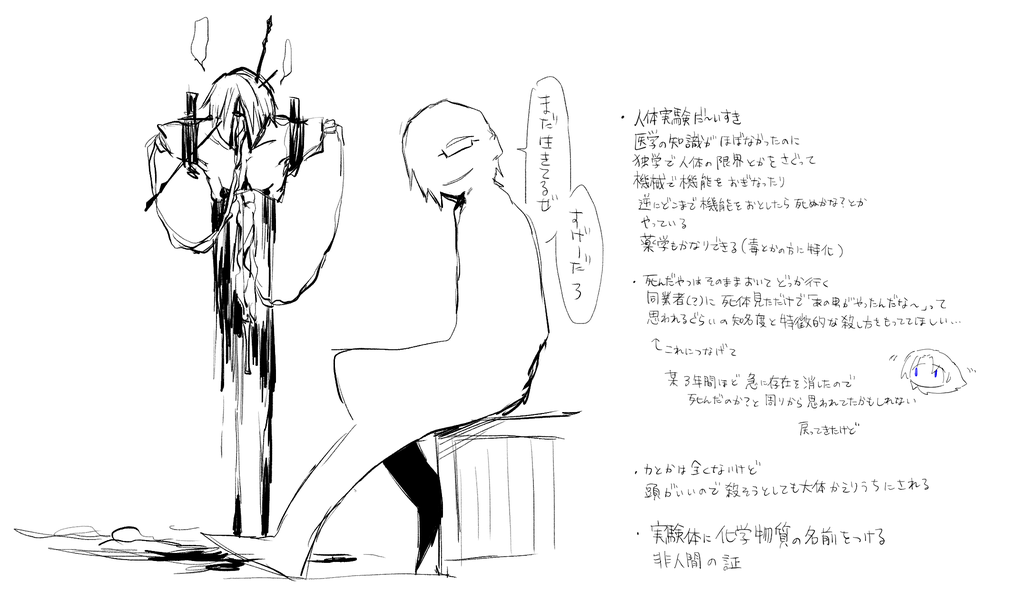 まだ生きてるぜ
すげーだろ
・人体実験だ～いすき
医学の知識がほぼなかったのに
独学で人体の限界とかをさぐって
機械で機能をおぎなったり
逆にどこまで機能をおとしたら死ぬかな?とか
やっている
薬学もかなりできる(毒とかの方に特化)
・死んだやつはそのままおいてどっか行く
同業者(?)に死体見ただけで「あの男がやったんだな～」って
思われるぐらいの知名度と特徴的な殺し方をもっててほしい…
↑これにつなげて
某3年間ほど急に存在を消したので
死んだのか?と周りから思われてたかもしれない
戻ってきたけど
・力とかは全くないけど
頭がいいので殺そうとしても大体かえりうちにされる
・実験体に化学物質の名前をつける
非人間の証